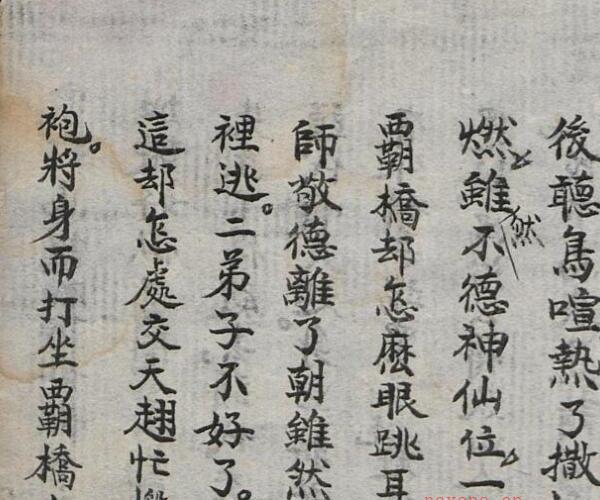 後聽鳥喧熱了撒
燃雖然不德神仙位一
覇橋却怎麽眼跳耳
師敬德離了朝雖然
裡逃。二弟子不好了。
這却怎處交天趐忙
袍。將身而打坐覇橋